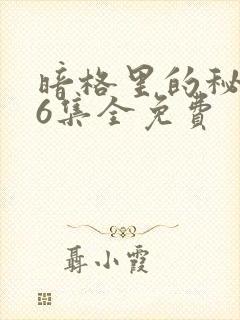 暗格里的秘
6集全免费
聂小霞